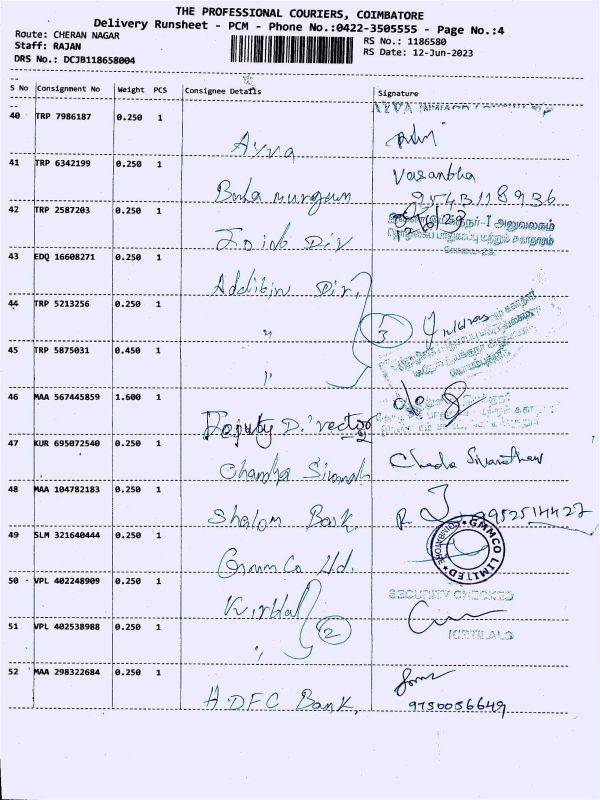 THE PROFESSIONAL COURIERS, COIMBATORE
Delivery Runsheet - PCM - Phone No.:0422-3505555 - Page No.:4
Route: CHERAN NAGAR
RS No.: 1186580
Staff: RAJAN
RS Date: 12-Jun-2023
DRS No.: DCJB118658004
S No Consignment No Weight PCS Consignee Details Signature
40 TRP 7986187 0.250 1
Ayva
41 TRP 6342199 0.250 1
Vasantha
9543118936
42 TRP 2587203 0.250 1
இணை இயக்குநர்-I அலுவலகம்
Joint Dir
43 EDQ 16608271 0.250 1
Dir,
44 TRP 5213256 0.250 1
"
3
45 TRP 5875031 0.450 1
"
46 MAA 567445859 1.600 1
Deputy Director
47 KUR 695072540 0.250 1
48 MAA 104782183 0.250 1
R J 9952514427
Shalom
49 SLM 321640444 0.250 1
GMMCO LIMITED
COIMBATORE
Gmm Co Ltd.
50 VPL 402248909 0.250 1
SECURITY CHECKED
KIRTILALS
51 VPL 402538988 0.250 1
"
2
52 MAA 298322684 0.250 1
HDFC Bank,
9750056649